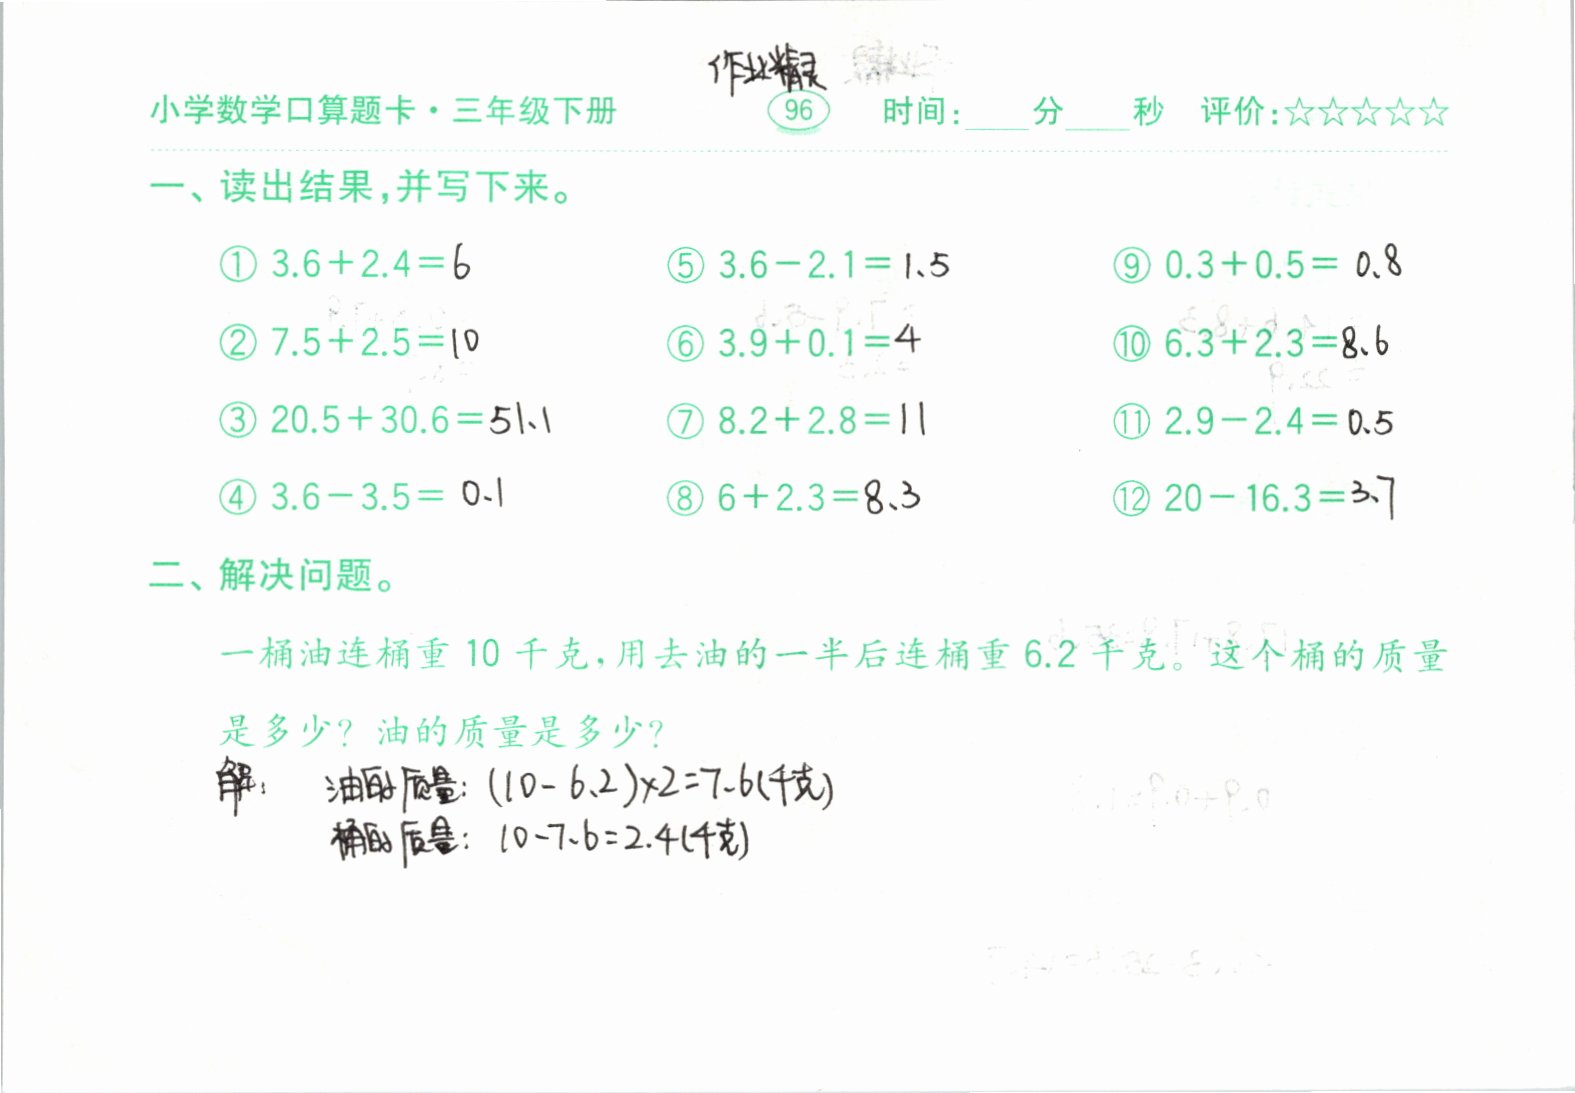 作业精灵
小学数学口算题卡·三年级下册 96 时间:____分____秒 评价:☆☆☆☆☆
一、读出结果,并写下来。
① 3.6+2.4=6 ⑤ 3.6-2.1=1.5 ⑨ 0.3+0.5=0.8
② 7.5+2.5=10 ⑥ 3.9+0.1=4 ⑩ 6.3+2.3=8.6
③ 20.5+30.6=51.1 ⑦ 8.2+2.8=11 ⑪ 2.9-2.4=0.5
④ 3.6-3.5=0.1 ⑧ 6+2.3=8.3 ⑫ 20-16.3=3.7
二、解决问题。
一桶油连桶重10千克,用去油的一半后连桶重6.2千克。这个桶的质量
是多少?油的质量是多少?
解: 油的质量: (10-6.2)×2=7.6(千克)
桶的质量: 10-7.6=2.4(千克)